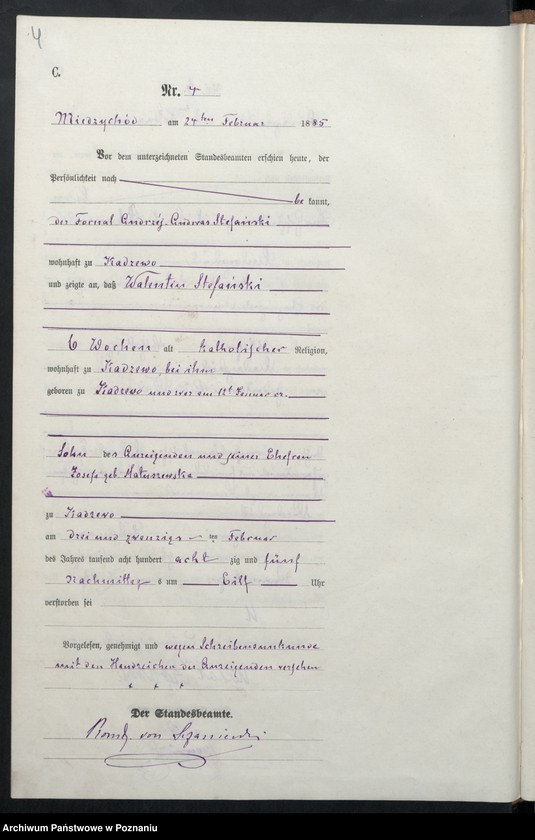 4
C.
Nr. 4
Mieczychód am 24ten Februar 1885
Vor dem unterzeichneten Standesbeamten erschien heute, der
Persönlichkeit nach
be kannt,
der Fornal Andrzéj-Andreas Stefański
wohnhaft zu Kadzewo
und zeigte an, daß Walentin Stefański
6 Wochen alt katholischer Religion,
wohnhaft zu Kadzewo, bei ihm
geboren zu Kadzewo und zwar am Januar cr.
Sohn des Anzeigenden und seiner Ehefrau
Josefa geb. Matuszewska
zu Kadzewo
am drei und zwanzigs ten Februar
des Jahres tausend acht hundert acht zig und fünf
Nachmittag s um Eilf Uhr
verstorben sei
Vorgelesen, genehmigt und wegen Schreibensunkunde
mit den Handzeichen des Anzeigenden versehen
+ + +
Der Standesbeamte.
von
Archiwum Państwowe w Poznaniu